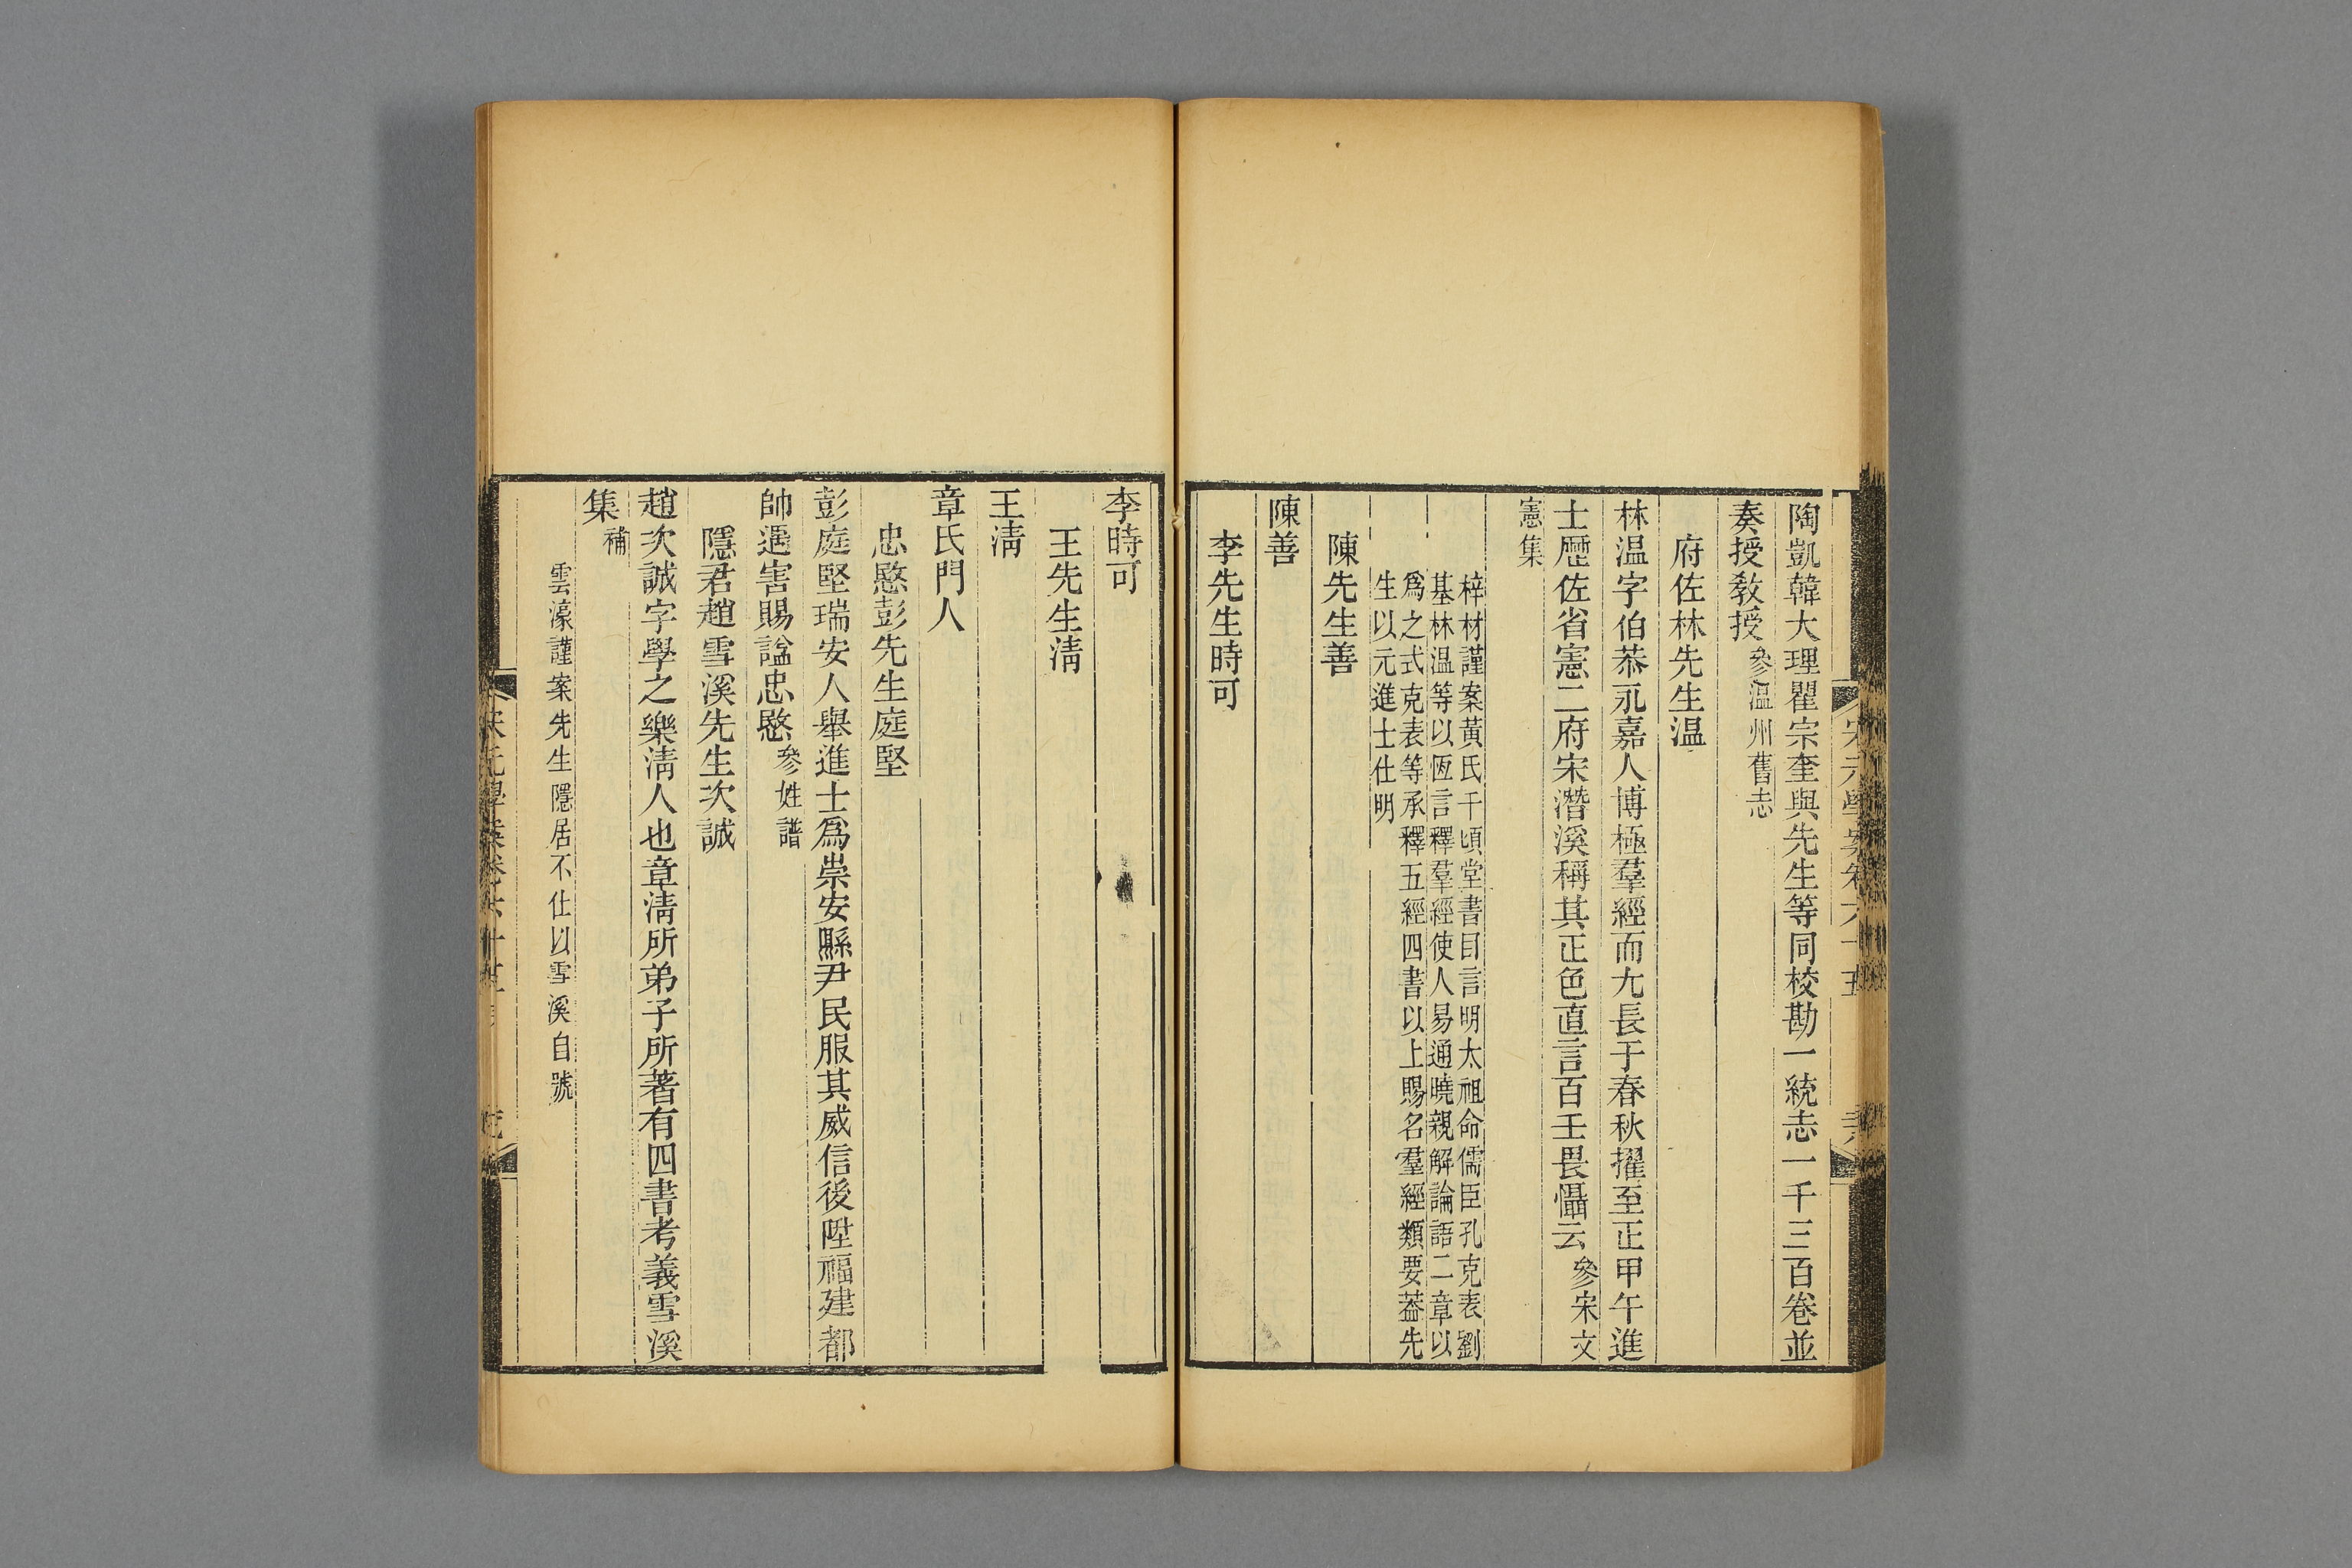 陶凱韓大理瞿宗奎與先生等同校勘一統志一千三百卷並
奏授敎授參溫州舊志
府佐林先生温
林温字伯恭永嘉人博極羣經而尤長于春秋擢至正甲午進
士歷佐省憲二府宋潛溪稱其正色直言百壬畏懾云參宋文
憲集
梓材謹案黃氏千頃堂書目言明太祖命儒臣孔克表劉
基林温等以恆言釋羣經使人易通曉親解論語二章以
爲之式克表等承釋五經四書以上賜名羣經類要葢先
生以元進士仕明
陳先生善
陳善
李先生時可
李時可
王先生淸
王淸
章氏門人
忠愍彭先生庭堅
彭庭堅瑞安人舉進士爲崇安縣尹民服其威信後陞福建都
帥遇害賜諡忠愍參姓譜
隱君趙雪溪先生次誠
趙次誠字學之樂淸人也章淸所弟子所著有四書考義雪溪
集補
雲濠謹案先生隱居不仕以雪溪自號